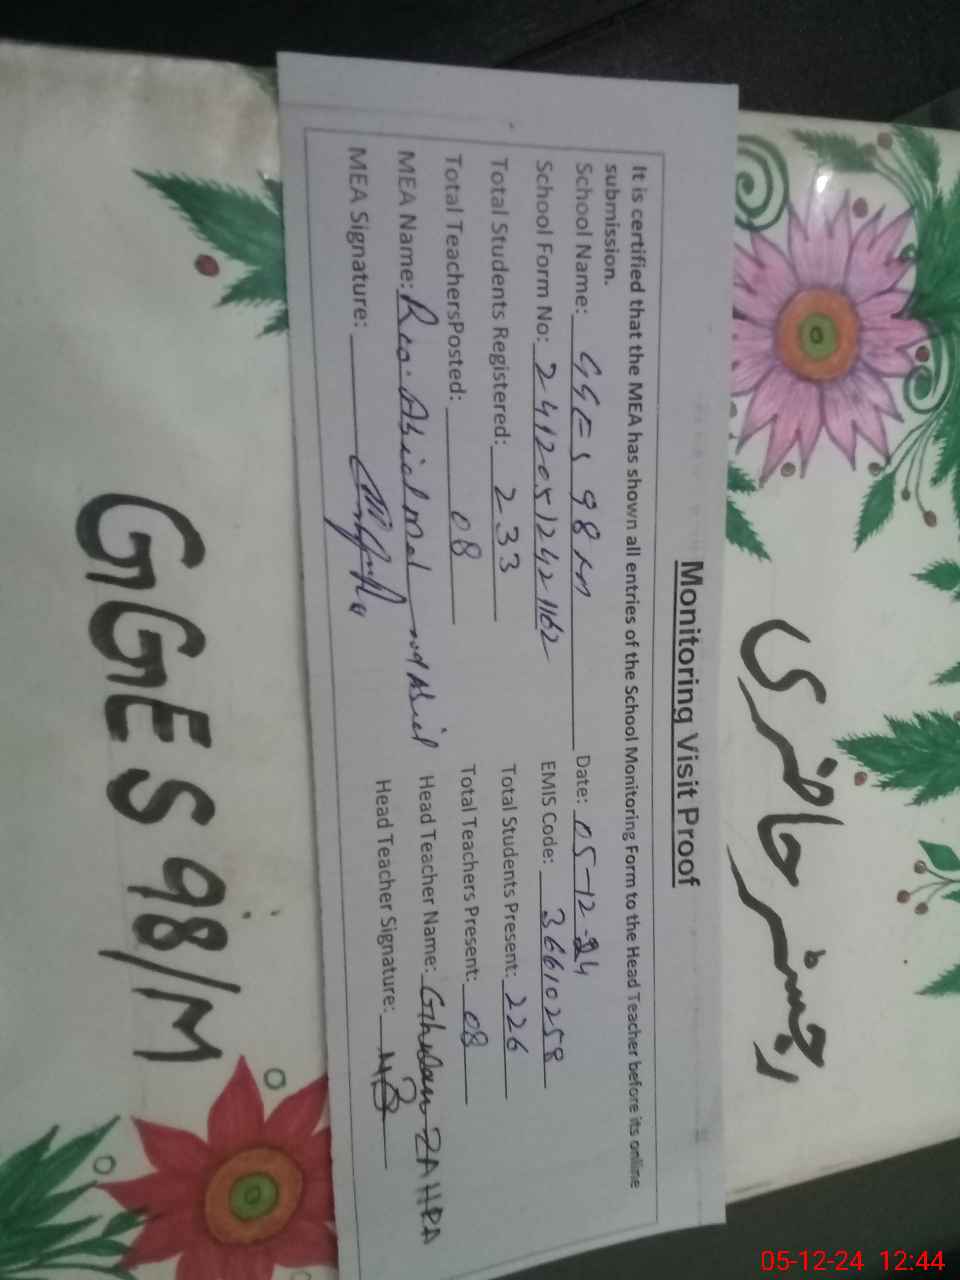 رجسٹر حاضری
Monitoring Visit Proof
It is certified that the MEA has shown all entries of the School Monitoring Form to the Head Teacher before its online
submission.
School Name: GGES 98/M Date: 05-12-24
School Form No: 2412051242 1162 EMIS Code: 36610258
Total Students Registered: 233 Total Students Present: 226
Total TeachersPosted: 08 Total Teachers Present: 08
MEA Name: Head Teacher Name: Ghulam ZAHRA
MEA Signature: Head Teacher Signature:
GGES 98/M
05-12-24 12:44